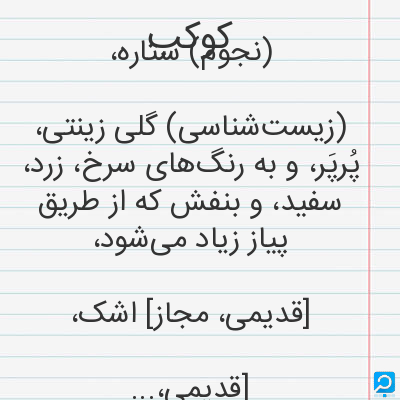 کوکب
(نجوم) ستاره،
(زیست‌شناسی) گلی زینتی،
پُرپَر، و به رنگ‌های سرخ، زرد،
سفید، و بنفش که از طریق
پیاز زیاد می‌شود،
[قدیمی، مجاز] اشک،
[قدیمی،...